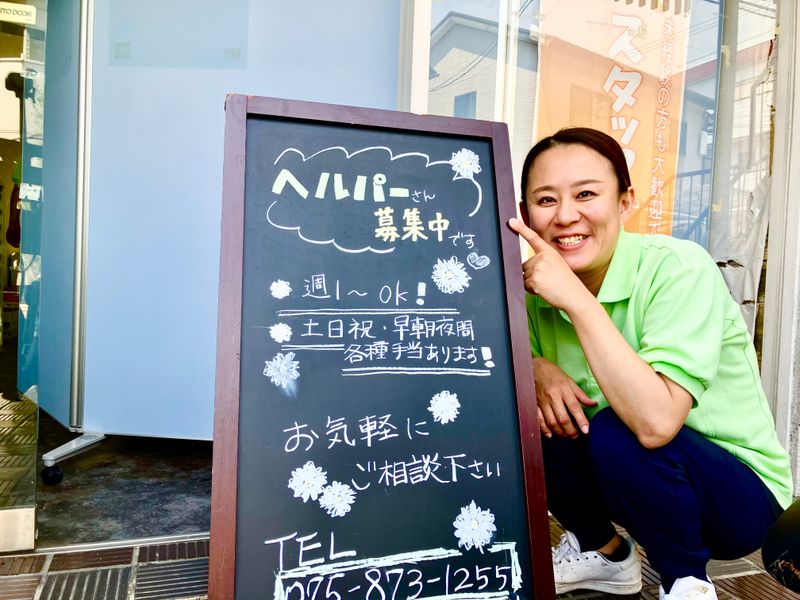 UTO DOOR
スタッ
験の方も大歓迎で
ヘルパーさん
募集中です
週1〜OK!
土日祝・早朝夜間
各種手当あります!
お気軽に
ご相談下さい
TEL
075-873-1255